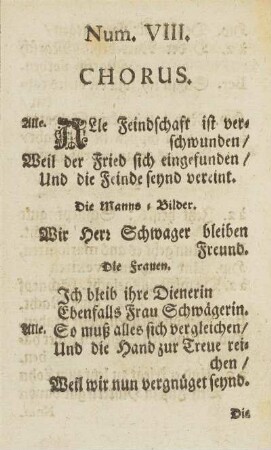 Num. VIII.
CHORUS.
Alle. ALle Feindschaft ist ver-
schwunden /
Weil der Fried sich eingefunden /
Und die Feinde seynd vereint.
Die Manns-Bilder.
Wir Herr Schwager bleiben
Freund.
Die Frauen.
Ich bleib ihre Dienerin
Ebenfalls Frau Schwägerin.
Alle. So muß alles sich vergleichen /
Und die Hand zur Treue rei-
chen /
Weil wir nun vergnüget seynd.
Die